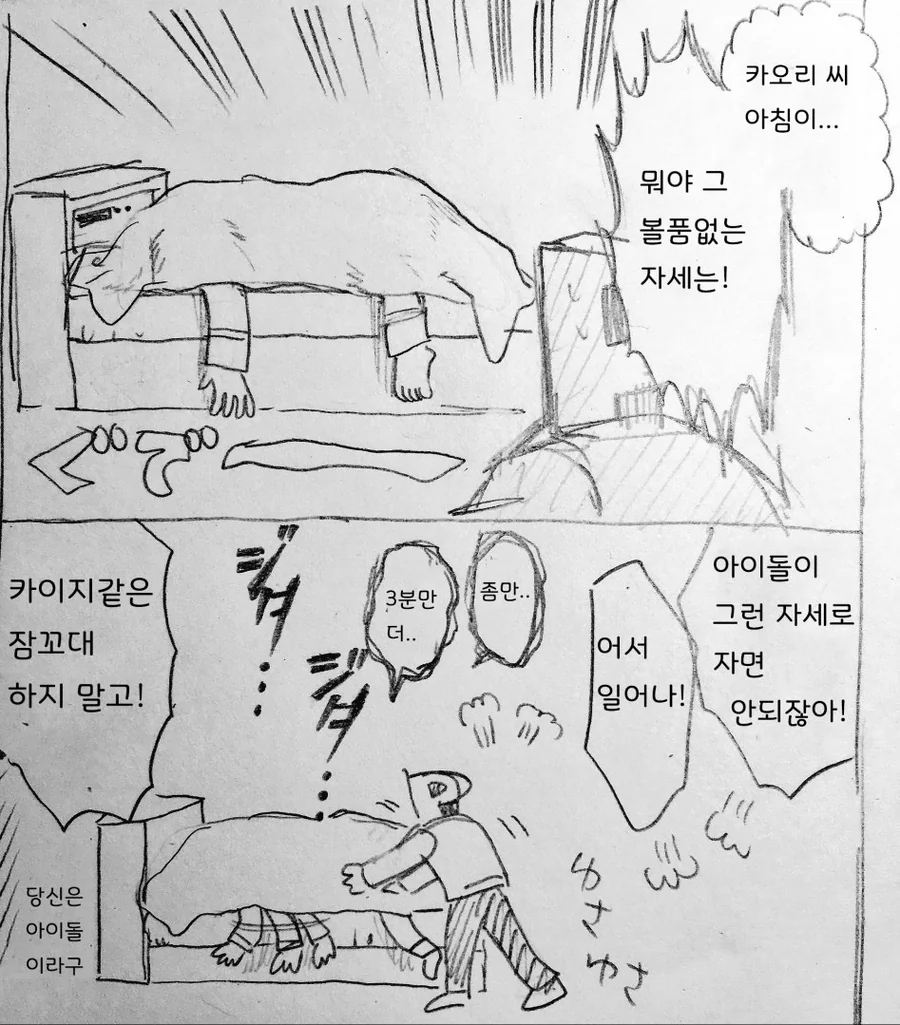 카오리 씨
아침이...
뭐야 그
볼품없는
자세는!
아이돌이
그런 자세로
자면
안되잖아!
어서
일어나!
좀만..
3분만
더..
카이지같은
잠꼬대
하지 말고!
당신은
아이돌
이라구
ゆさ
ゆさ